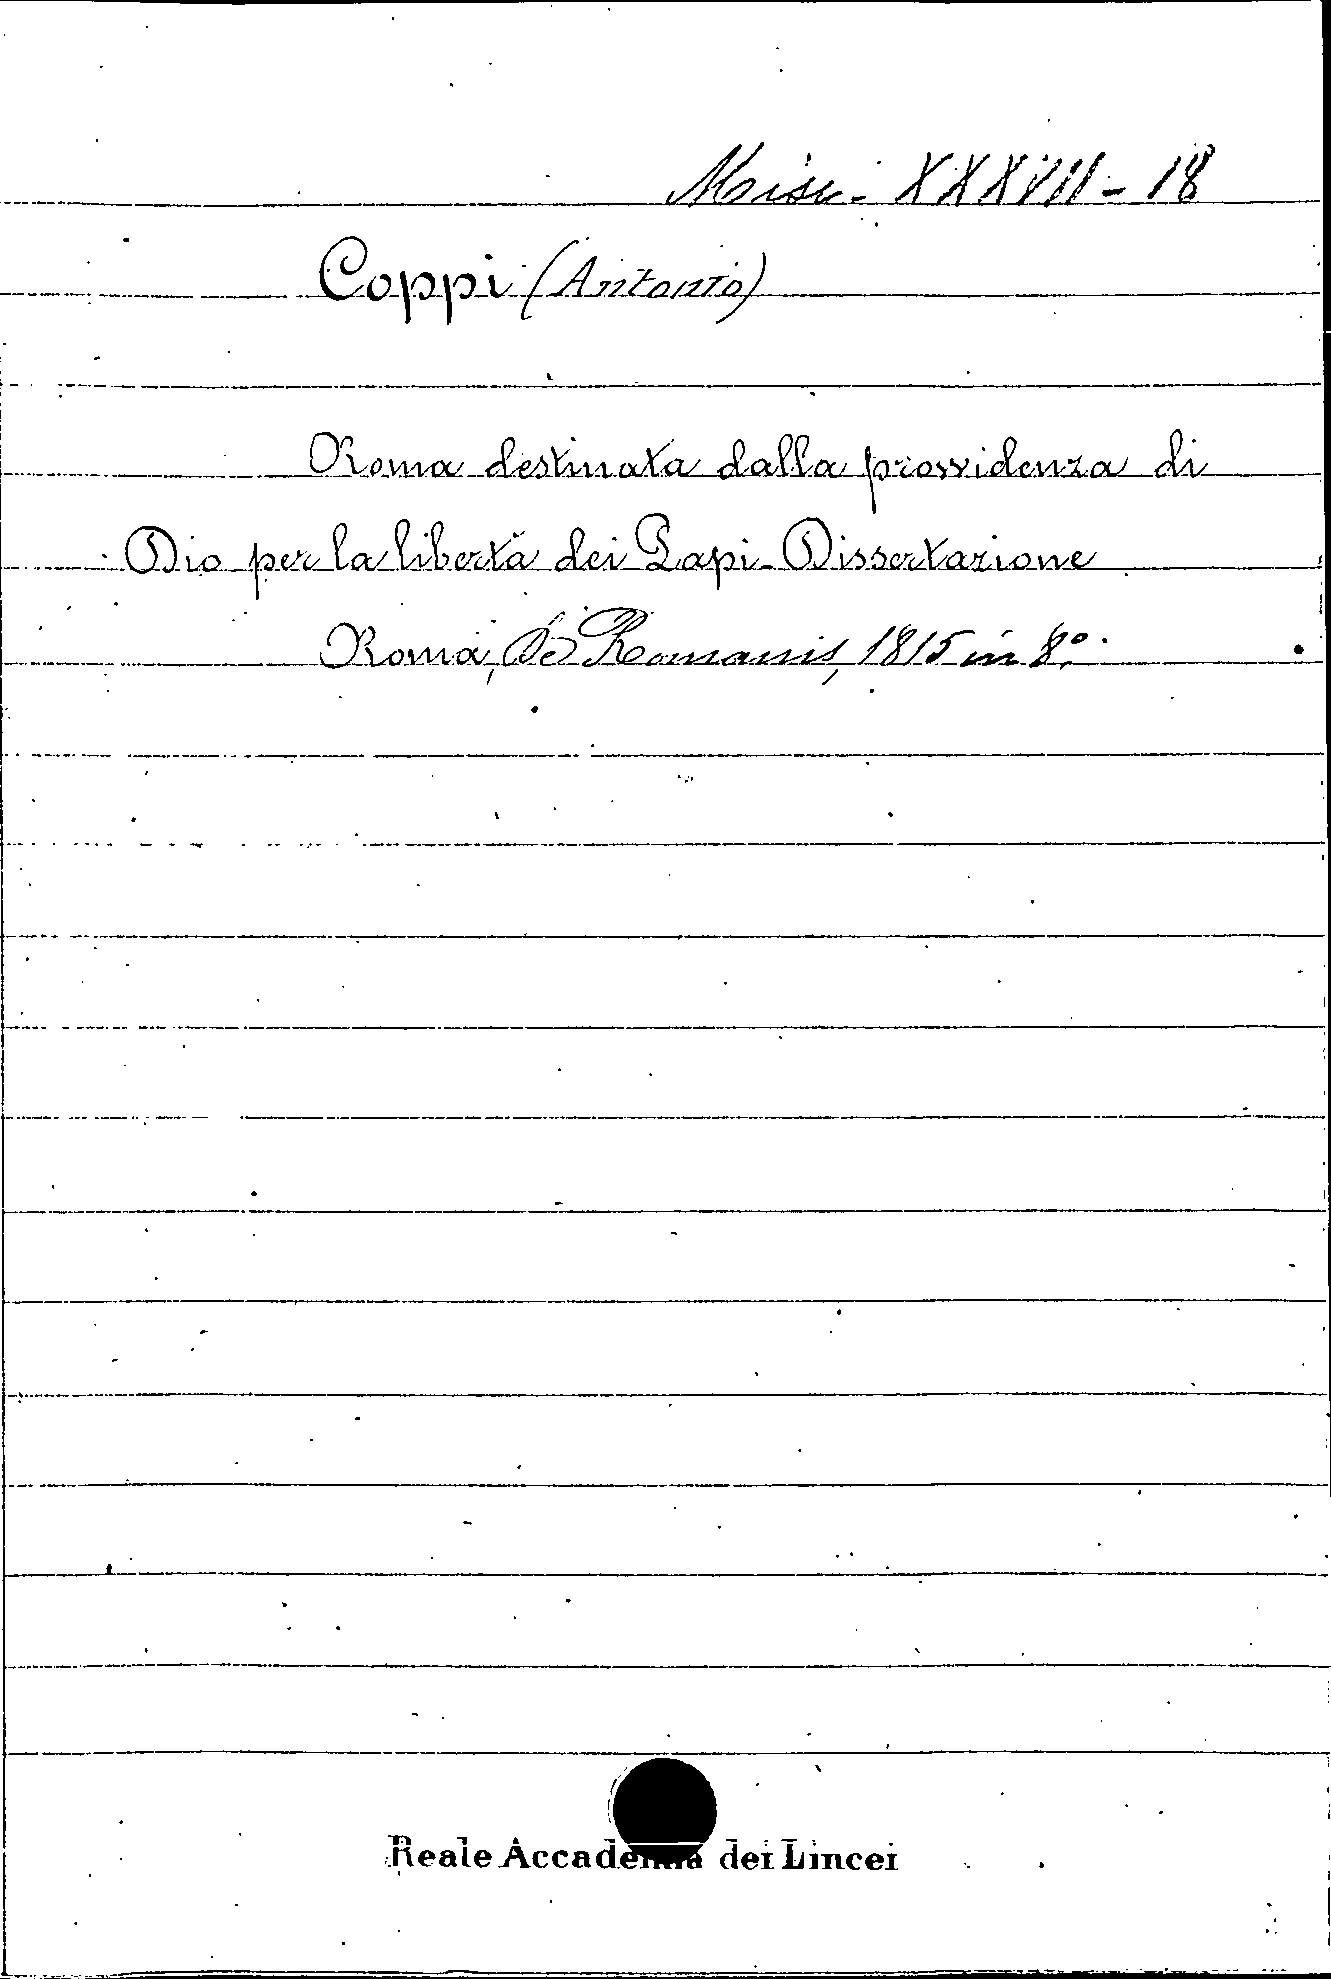 Misc. XXXVII - 18
Coppi (Antonio)
Roma destinata dalla provvidenza di
Dio per la libertà dei Papi - Dissertazione
Roma, De Romanis, 1815 in 8°.
Reale Accademia dei Lincei